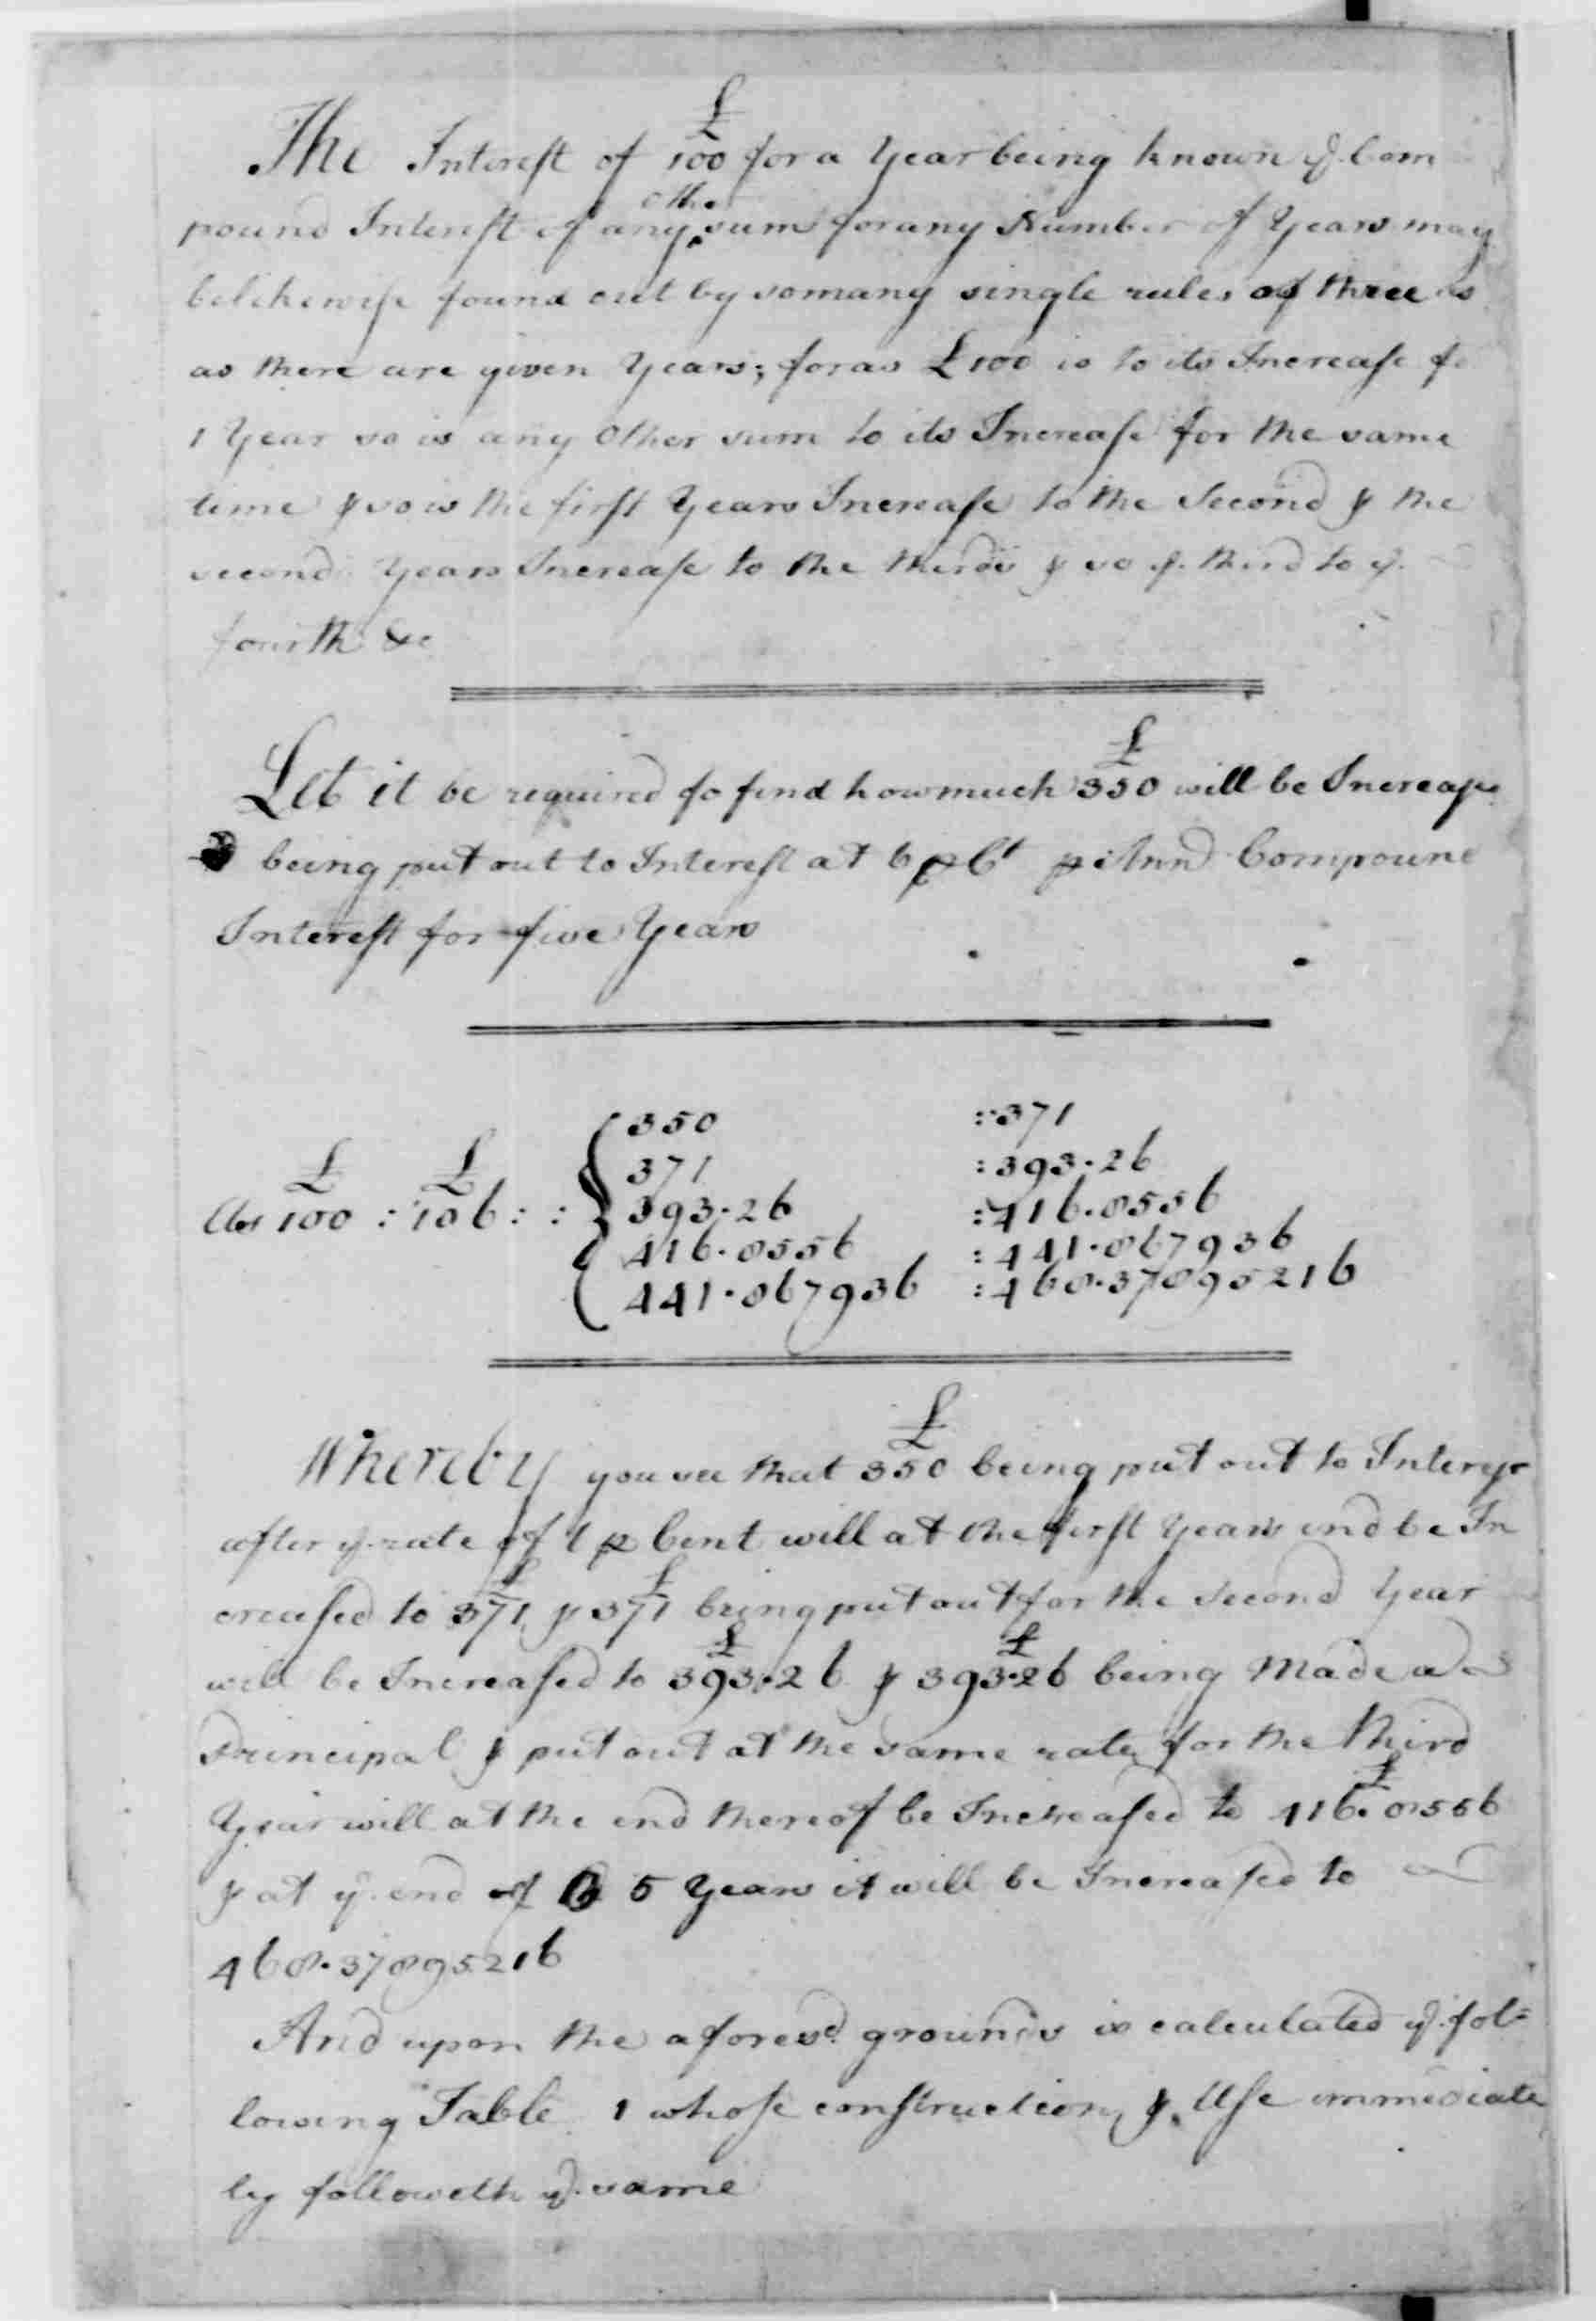 £
The Interest of 100 for a Year being known ye. Com
other
pound Interest of any ‸ sum for any Number of Years may
be likewise found out by so many single rules of three as
as there are given Years; for as £100 is to its Increase fo
1 Year so is any Other sum to its Increase for the same
time & so is the first Years Increase to the Second & the
second Years Increase to the third & so ye. third to ye.
fourth &c
£
Let it be required to find how much 350 will be Increase
being put out to Interest at 6 p Ct p: Ann Compound
Interest for five Years
350 : 371
£ £ 371 : 393.26
As 100 : 106 : : 393.26 : 416.8556
416.8556 : 441.867936
441.867936 : 468.37895216
£
Whereby you see that 350 being put out to Interest
after ye. rate of 6 p Cent will at the first Years end be In
£ £
creased to 371 & 371 being put out for the Second Year
£ £
will be Increased to 393.26 & 393.26 being Made a
Principal & put out at the same rate for the third
£
Year will at the end thereof be Increased to 416.8556
& at ye. end of 5 Years it will be Increased to
468.37895216
And upon the aforesd. grounds is calculated ye. fol=
lowing Table 1 whose construction & Use immediate
ly followeth ye. same